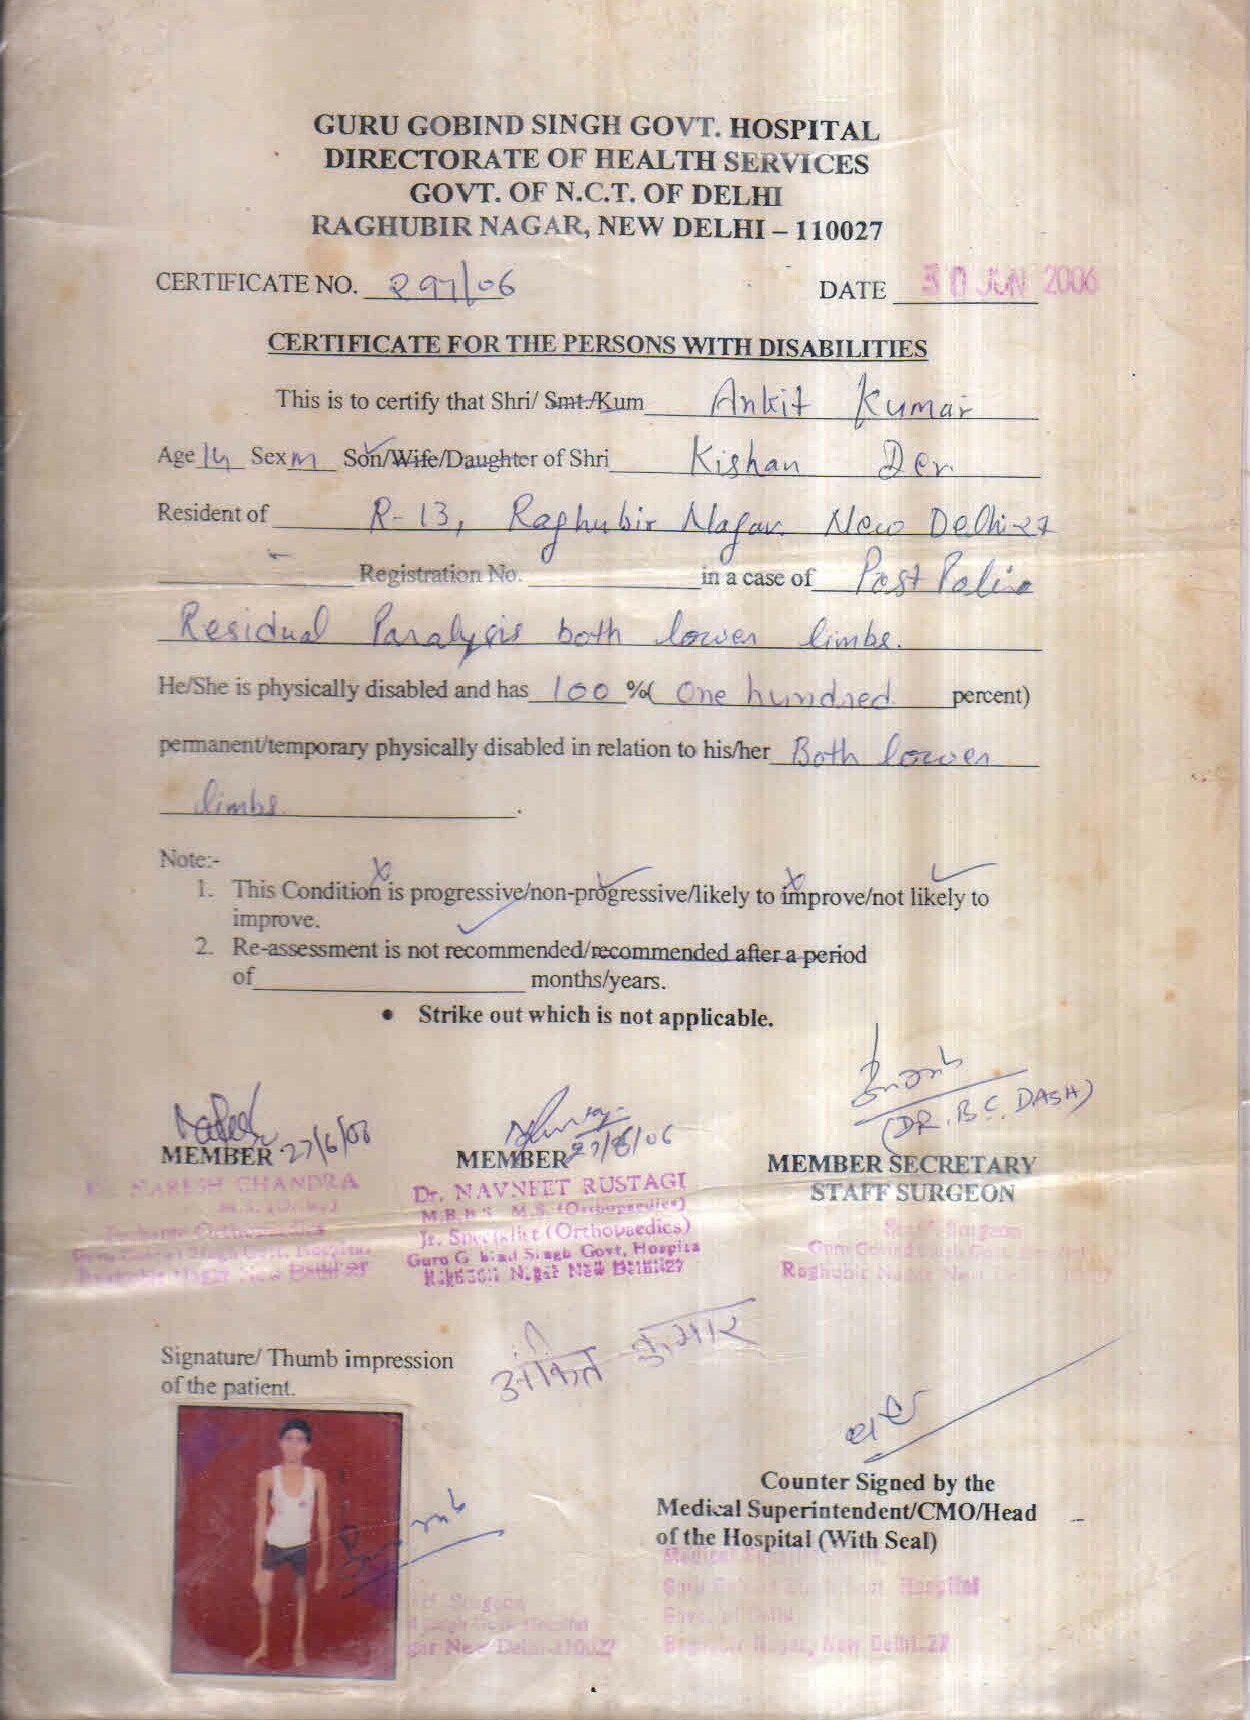 GURU GOBIND SINGH GOVT. HOSPITAL
DIRECTORATE OF HEALTH SERVICES
GOVT. OF N.C.T. OF DELHI
RAGHUBIR NAGAR, NEW DELHI – 110027
CERTIFICATE NO. 297/06 DATE 30 JUN 2006
CERTIFICATE FOR THE PERSONS WITH DISABILITIES
This is to certify that Shri/ Smt./Kum Ankit Kumar
Age 14 Sex M Son/Wife/Daughter of Shri Kishan Dev
Resident of R-13, Raghubir Nagar New Delhi-27
Registration No. in a case of Post Polio
Residual Paralysis both lower limbs.
He/She is physically disabled and has 100 %( One hundred percent)
permanent/temporary physically disabled in relation to his/her Both lower
limbs.
Note:-
1. This Condition is progressive/non-progressive/likely to improve/not likely to
improve.
2. Re-assessment is not recommended/recommended after a period
of months/years.
• Strike out which is not applicable.
(DR. B.C. DASH)
MEMBER 27/6/06 MEMBER 27/6/06 MEMBER SECRETARY
STAFF SURGEON
NARESH CHANDRA Dr. NAVNEET RUSTAGI
M.B.B.S M.S. (Orthopaedics)
Jr. Specialist (Orthopaedics) Staff Surgeon
Guru Gobind Singh Govt. Hospital
Raghubir Nagar New Delhi-27 Raghubir Nagar New Delhi
Signature/ Thumb impression अंकित कुमार
of the patient.
Counter Signed by the
Medical Superintendent/CMO/Head
of the Hospital (With Seal)
Medical
Hospital
Surgeon
Hospital Govt. of Delhi
New Delhi-110027 Nagar, New Delhi-27